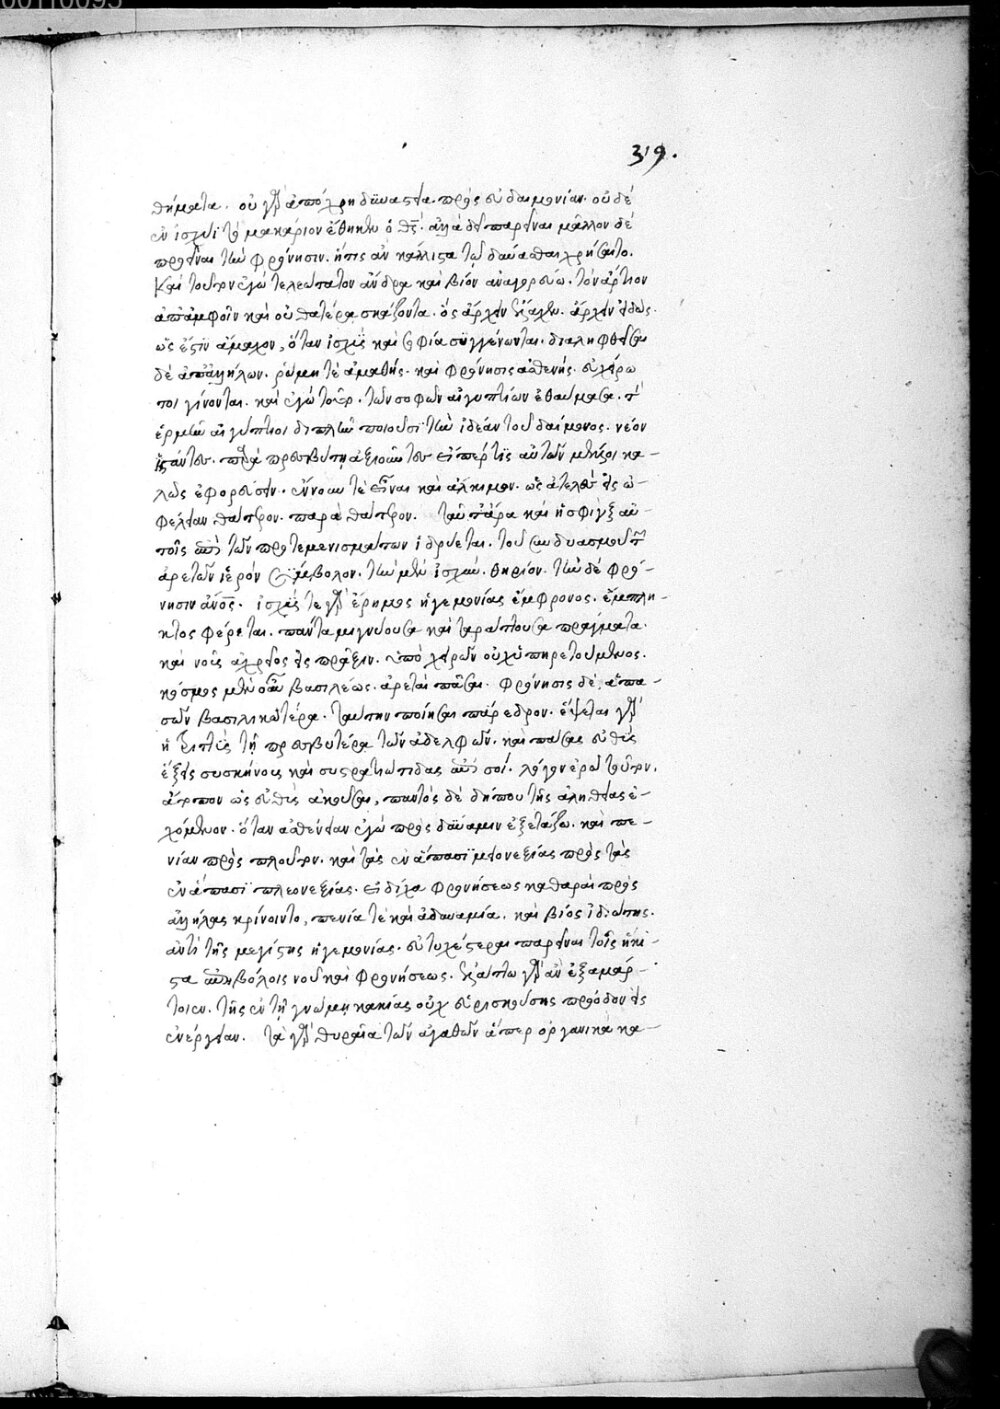 00110095
319.
θήματα. οὐ γὰρ ἀπόχρη δύνασθαι πρὸς εὐδαιμονίαν. οὐδέ
ἐν ἰσχύϊ τὸ μακάριον ἔθηκεν ὁ θς. ἀλλὰ δεῖ παρεῖναι μᾶλλον δέ
προεῖναι τὴν φρόνησιν. ἥτις ἂν κάλλιστα τῷ δύνασθαι χρήσαιτο.
Καὶ τοῦτον ἐγὼ τελεώτατον ἄνδρα καὶ βίον ἀναγορεύω. τὸν ἄρτιον
ἀπ' ἀμφοῖν καὶ οὐ θατέρᾳ σκάζοντα. ὃς ἄρχειν ἔλαχεν. ἄρχειν εἰδώς.
ὡς ἔστιν ἄμαχον, ὅταν ἰσχὺς καὶ σοφία συγγένωνται. διαληφθεῖσαι
δὲ ἀπ' ἀλλήλων. ῥώμη τὲ ἀμαθής. καὶ φρόνησις ἀσθενής. εὐχείρω
τοι γίνονται. καὶ ἐγὼ τοῦτο. τῶν σοφῶν αἰγυπτίων ἐθαύμασα. τ'
ἑρμῆν αἰγύπτιοι διπλῆν ποιοῦσι τὴν ἰδέαν τοῦ δαίμονος. νέον
ἱστάντες. παρὰ πρεσβύτῃ ἀξιοῦντες εἴπερ τις αὐτῶν μέλλοι κα-
λῶς ἐφορεύσειν. ἔννουν τὲ εἶναι καὶ ἄλκιμον. ὡς ἀτελὲς εἰς ὠ-
φέλειαν θάτερον. παρὰ θάτερον. ταῦτ' ἄρα καὶ ἡ σφίγξ αὐ-
τοῖς ἐπὶ τῶν προτεμενισμάτων ἱδρύεται. τοῦ συνδυασμοῦ τῶν
ἀρετῶν ἱερὸν σύμβολον. τὴν μὲν ἰσχὺν. θηρίον. τὴν δὲ φρό-
νησιν ἄνος. ἰσχύς τε γὰρ ἔρημος ἡγεμονίας ἔμφρονος. ἔμπλη-
κτος φέρεται. πάντα μιγνύουσα καὶ ταράττουσα πράγματα.
καὶ νοῦς ἀχρεῖος εἰς πρᾶξιν. ὑπὸ χειρῶν οὐχ ὑπηρετούμενος.
κόσμος μὲν οὖν βασιλέως. ἀρεταὶ πᾶσαι. φρόνησις δὲ, ἁπα-
σῶν βασιλικωτέρα. ταύτην ποίησαι πάρεδρον. ἕψεται γὰρ
ἡ τριττὺς τῇ πρεσβυτέρᾳ τῶν ἀδελφῶν. καὶ πάσας εὐθὺς
ἕξεις συσκήνους καὶ συστρατιώτιδας ἐπὶ σοί. λόγον ἐρῶ τοῦτον.
ἄτοπον ὡς εὐθὺς ἀκοῦσαι, παντὸς δὲ δήπου τῆς ἀληθείας ἐ-
χόμενον. ὅταν ἀσθένειαν ἐγὼ πρὸς δύναμιν ἐξετάζω. καὶ πε-
νίαν πρὸς πλοῦτον. καὶ τὰς ἐν ἅπασι μειονεξίας πρὸς τὰς
ἐν ἅπασι πλεονεξίας. εἰ δίχα φρονήσεως καθαραὶ πρὸς
ἀλλήλας κρίνοιντο, πενία τὲ καὶ ἀδυναμία, καὶ βίος ἰδιώτης.
ἀντὶ τῆς μεγίστης ἡγεμονίας. εὐτυχέστεραι παρεῖναι τοῖς ἥκι-
στα ἐπηβόλοις νοῦ καὶ φρονήσεως. ἐλάττω γὰρ ἂν ἐξαμάρ-
τοιεν. τῆς ἐν τῇ γνώμῃ κακίας οὐχ εὑρισκούσης πρόοδον εἰς
ἐνέργειαν. τὰ γὰρ θυραῖα τῶν ἀγαθῶν ἅπερ ὀργανικὰ κα-